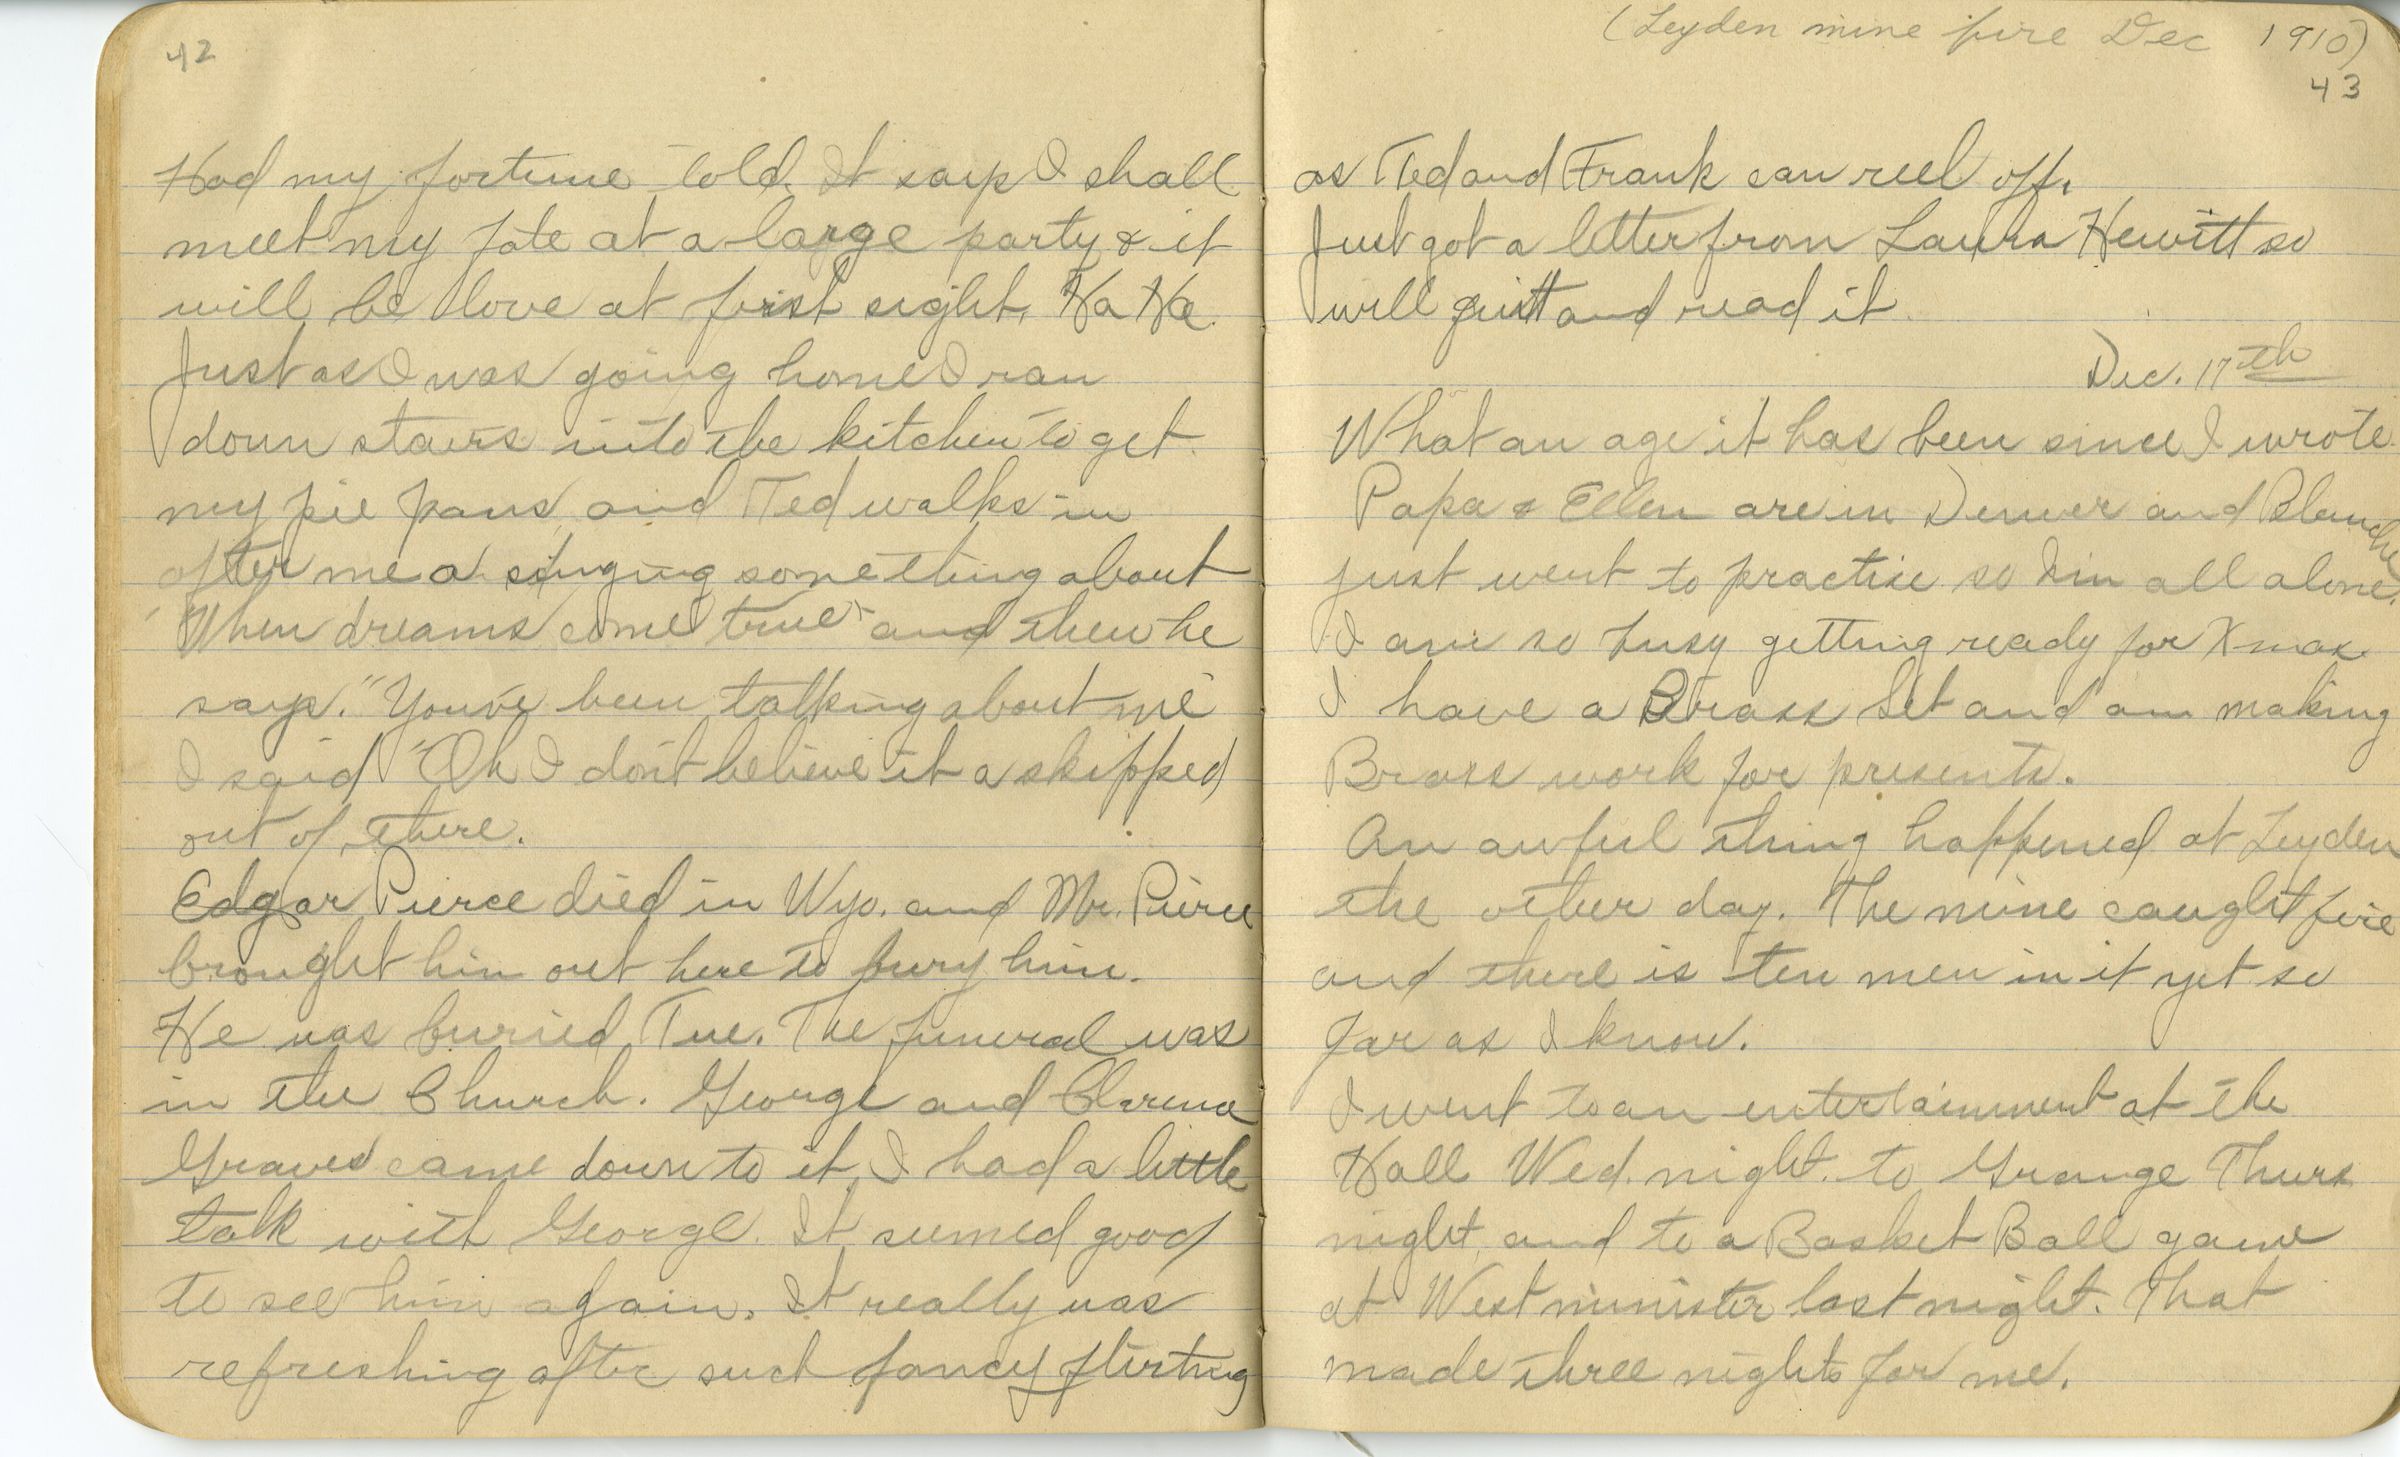 42
Had my fortune told. It says I shall
meet my fate at a large party & it
will be love at first sight. Ha Ha.
Just as I was going home I ran
down stairs into the kitchen to get
my pie pans, and Ted walks in
after me a singing something about
"When dreams come true" and then he
says. "You've been talking about me"
I said "Oh I don't believe it a skipped
out of there.
Edgar Pierce died in Wyo. and Mr. Pierce
brought him out here to bury him.
He was buried Tue. The funeral was
in the Church. George and Clarence
Graves came down to it. I had a little
talk with George. It seemed good
to see him again. It really was
refreshing after such fancy flirting
(Leyden mine fire Dec 1910)
43
as Ted and Frank can reel off.
Just got a letter from Laura Hewitt so
will quitt and read it.
Dec. 17th
What an age it has been since I wrote.
Papa & Ellen are in Denver and Blanche
just went to practise so I'm all alone.
I am so busy getting ready for Xmas.
I have a Brass Set and am making
Brass work for presents.
An awful thing happened at Leyden
the other day. The mine caught fire
and there is ten men in it yet so
far as I know.
I went to an entertainment at the
Hall Wed. night. to Grange Thurs
night, and to a Basket Ball game
at Westminister last night. That
made three nights for me.